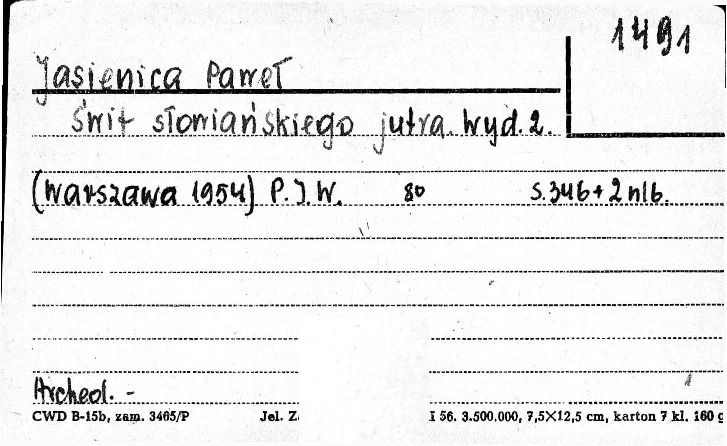 1491
Jasienica Paweł
Świt słowiańskiego jutra. Wyd. 2.
(Warszawa 1954) P.I.W. 8o s. 346 + 2 nlb.
Archeol. -
CWD B-15b, zam. 3465/P Jel. Z. I 56. 3.500.000, 7,5×12,5 cm, karton 7 kl. 160 g